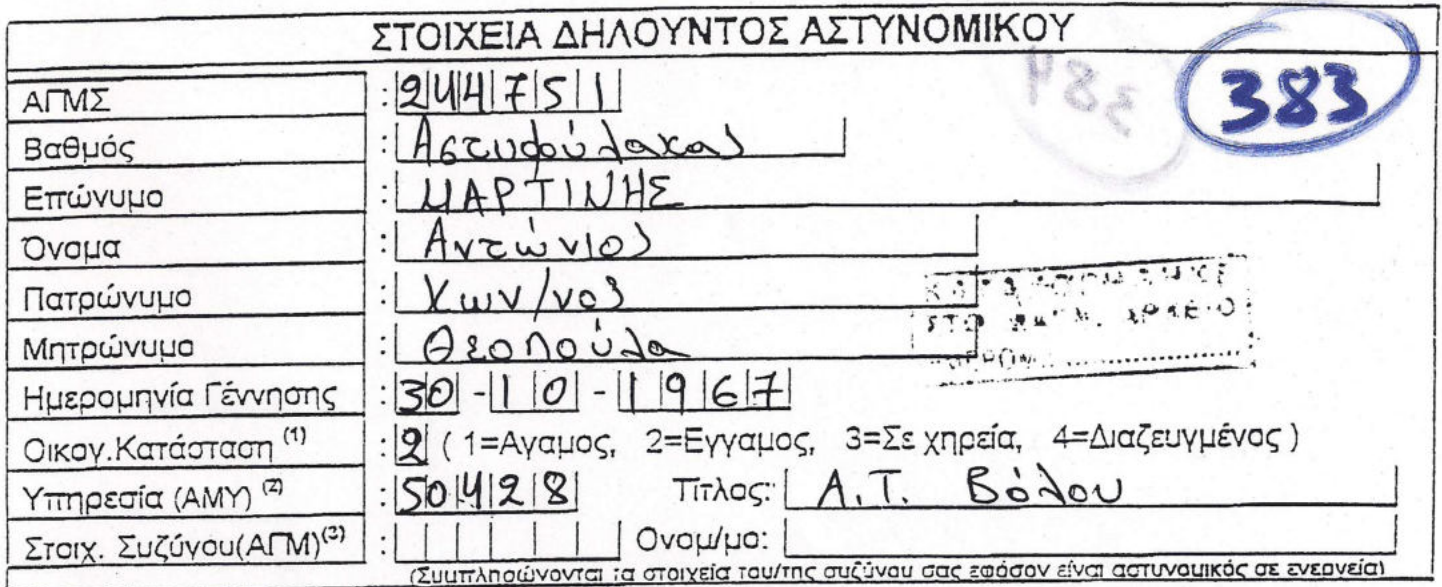 ΣΤΟΙΧΕΙΑ ΔΗΛΟΥΝΤΟΣ ΑΣΤΥΝΟΜΙΚΟΥ
383
ΑΓΜΣ : 244751
Βαθμός : Αστυφύλακας
Επώνυμο : ΜΑΡΤΙΝΗΣ
Όνομα : Αντώνιος
Πατρώνυμο : Κων/νος
Μητρώνυμο : Θεοπούλα
Ημερομηνία Γέννησης : 30-10-1967
Οικογ.Κατάσταση (1) : 2 ( 1=Αγαμος, 2=Εγγαμος, 3=Σε χηρεία, 4=Διαζευγμένος )
Υπηρεσία (ΑΜΥ) (2) : 50428 Τίτλος: Α.Τ. Βόλου
Στοιχ. Συζύγου(ΑΓΜ)(3) : Ονομ/μο:
(Συμπληρώνονται τα στοιχεία του/της συζύγου σας εφόσον είναι αστυνομικός σε ενεργεία)